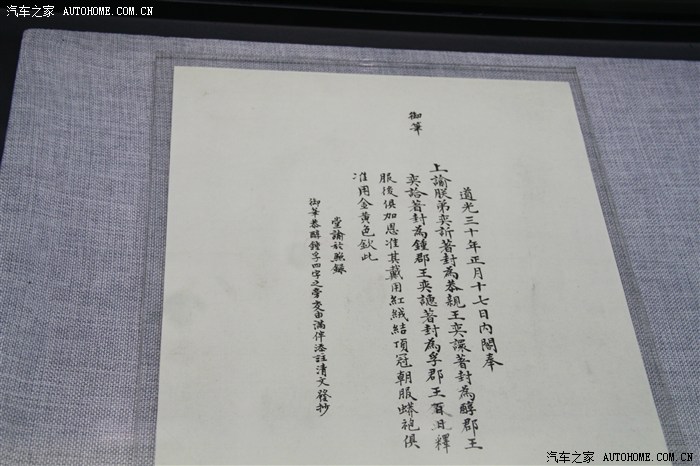 汽车之家 AUTOHOME.COM.CN
御筆
道光三十年正月十七日內閣奉
上諭朕弟奕訢著封為恭親王奕譞著封為醇郡王
奕詥著封為鍾郡王奕譓著封為孚郡王 釋
服後俱加恩准其戴用紅絨結頂冠朝服蟒袍俱
准用金黃色欽此
堂諭於照錄
御筆恭醇鍾孚四字之旁交由滿伴添註清文發抄
汽车之家 AUTOHOME.COM.CN